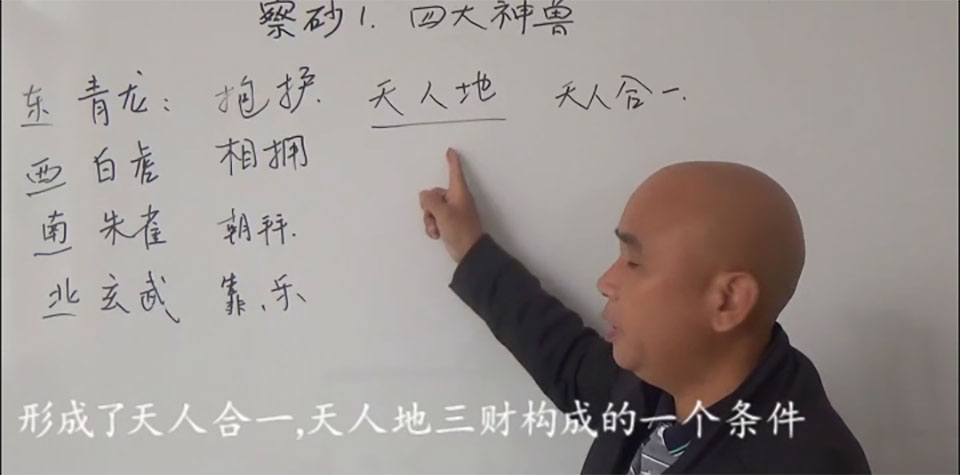 察砂1. 四大神兽
东 青龙: 抱护. 天人地 天人合一.
西 白虎 相拥
南 朱雀 朝拜.
北 玄武 靠、乐
形成了天人合一,天人地三财构成的一个条件